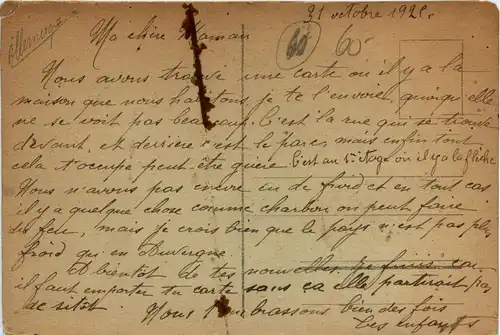 Allemagne
31 octobre 1921.
60
Ma chère Maman
Nous avons trouvé une carte ou il y a la
maison que nous habitons, je te l'envoie, quoiqu'elle
ne se voit pas beaucoup. C'est la rue qui se trouve
devant, et derrière c'est le parc, mais enfin tout
cela t'occupe peut-être guère. C'est au 1er étage ou il y a la flèche
Nous n'avons pas encore eu de froid et en tout cas
il y a quelque chose comme charbon on peut faire
du feu, mais je crois bien que le pays n'est pas plus
froid qu'en Auvergne
A bientôt de tes nouvelles je finis car
il faut emporter ta carte sans ça elle partirait pas
de sitôt Nous t'embrassons bien des fois
Tes enfants